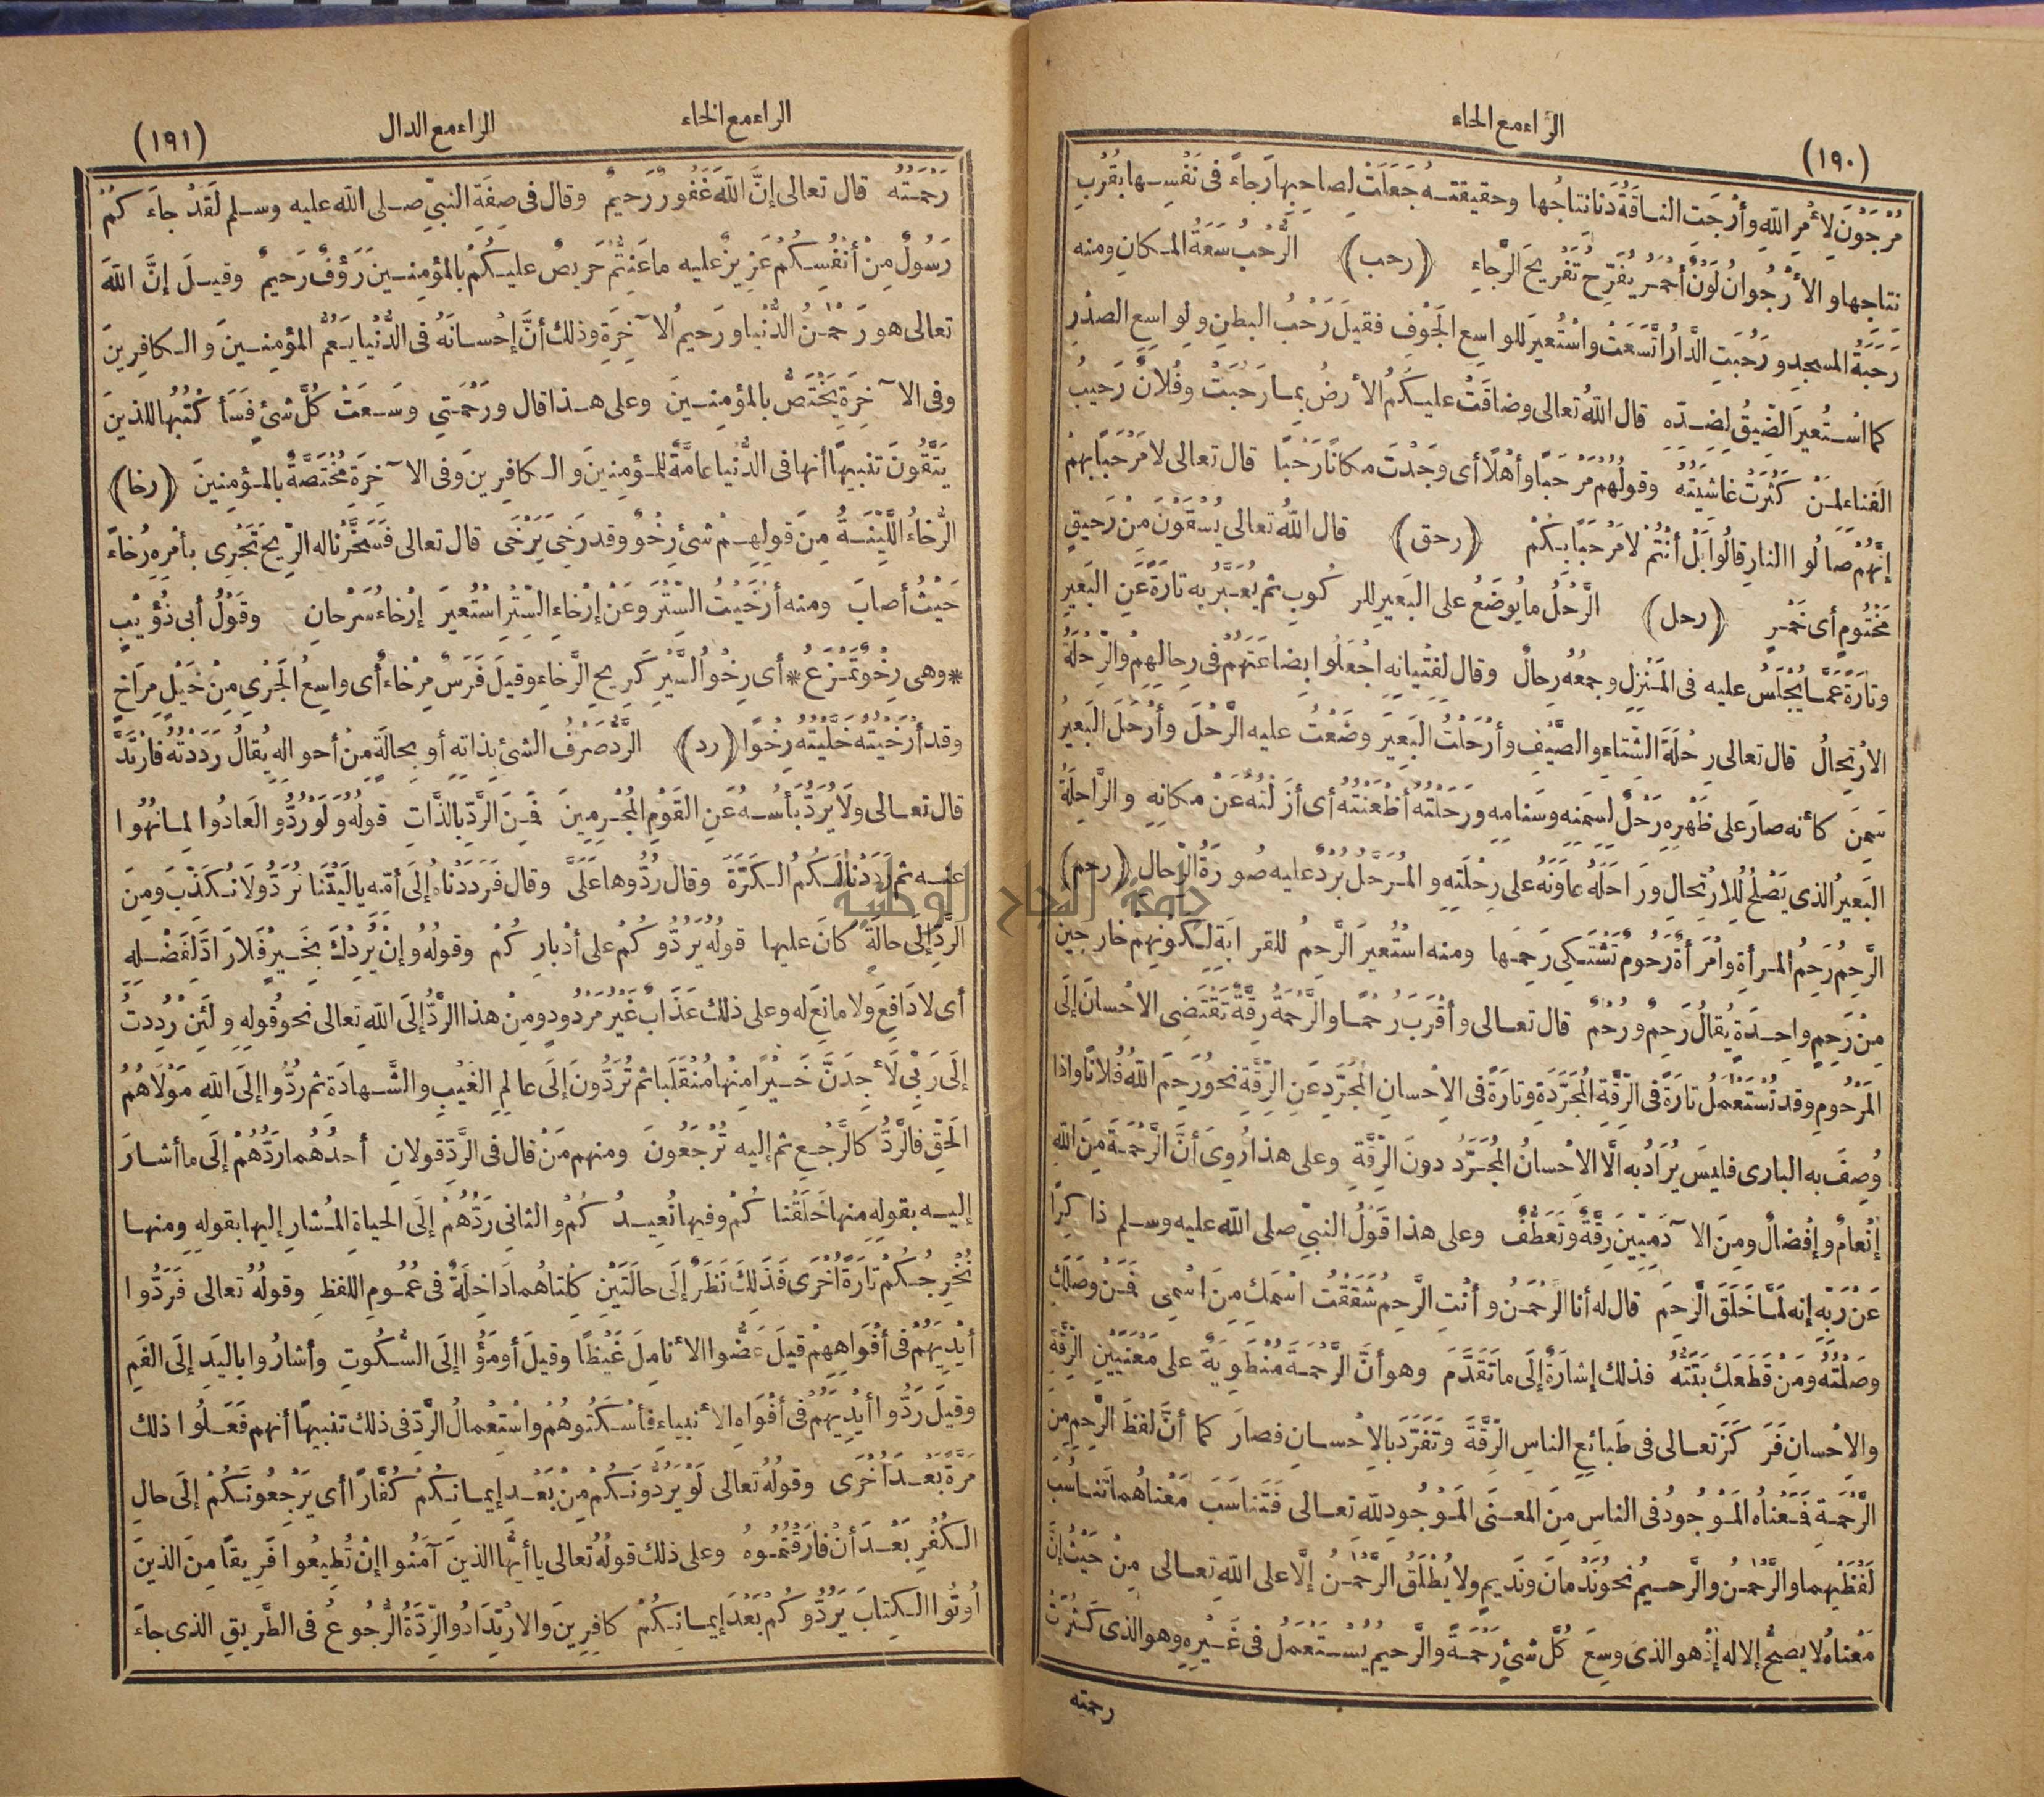 الراء مع الحاء
(١٩٠)
مُرْجَوْنَ لِأَمْرِ اللّٰهِ وأَرْجَتِ الناقَةُ دَنا نِتاجُها وحقيقتـه جَعَلَتْ لِصاحِبِها رَجاءً فى نَفْسِـها بقُرْبِ
نتاجِها والأُرْجُوانُ لَوْنٌ أَحْمَرُ يُفَرِّحُ تَفْرِيحَ الرَّجاءِ (رحب) الرُّحْبُ سَعَةُ المـكانِ ومنه
رَحَبَةُ المسجِدِ ورَحُبَتِ الدَّارُ اتَّسَعَتْ واسْتُعيرَ للواسِعِ الجَوْفِ فقيلَ رَحْبُ البطنِ ولواسِعِ الصدْرِ
كما اسْـتُعيرَ الضَّيِّقُ لِضِـدِّهِ قال اللّٰهُ تعالى وضاقَتْ عليـكُمُ الأرضُ بمـا رَحُبَتْ وفُلانٌ رَحيبُ
الفَناء لمَـنْ كَثُرَتْ غاشِيَتُهُ وقولُهُم مَرْحَبًا وأهْلًا أى وجَدْتَ مكانًا رَحْبًا قال تعالى لا مَرْحَبًا بِهِمْ
إنَّهُمْ صَالُوا النارِ قالُوا بَلْ أنْتُمْ لا مَرْحَبًا بِكُمْ (رحق) قال اللّٰهُ تعالى يُسْقَوْنَ مِنْ رَحِيقٍ
مَخْتُومٍ أى خَمْـرٍ (رحل) الرَّحْلُ ما يُوضَعُ على البَعيرِ للركُوبِ ثم يُعَـبَّرُ به تارَةً عَنِ البَعيرِ
وتارَةً عَمَّـا يُجْلَسُ عليه فى المَـنْزِلِ وجمعُهُ رِحالٌ وقال لِفِتْيانِهِ اجْعَلُوا بِضاعَتَهُمْ فى رِحالِهِمْ والرِّحْلَةُ
الارْتِحالُ قال تعالى رِحْلَةَ الشِّتاءِ والصَّيْفِ وأَرْحَلْتُ البَعيرَ وضَعْتُ عليه الرَّحْلَ وأَرْحَلَ البَعيرُ
سَمِنَ كأنه صارَ على ظَهْرِهِ رَحْلٌ لِسِمَنِهِ وسَنامِهِ ورَحَلْتُهُ أظْعَنْتُه أى أزَلْتُهُ عَنْ مكانِهِ والرَّاحِلَةُ
البَعيرُ الذى يَصْلُحُ لِلارْتِحالِ وراحَلَهُ عاوَنَهُ على رِحْلَتِهِ والمُـرَحَّلُ بُرْدٌ عليه صُورَةُ الرِّحالِ (رحم)
الرَّحِمُ رَحِمُ المـرأةِ وامْرَأةٌ رَحُومٌ تَشْتَـكِى رَحِمَـها ومنه اسْتُعيرَ الرَّحِمُ للقرابَةِ لـكونِهِم خارجينَ
مِنْ رَحِمٍ واحِـدَةٍ يُقالُ رَحِمٌ ورُحْمٌ قال تعـالى وأقْرَبَ رُحْمًـا والرَّحْمَةُ رِقَّةٌ تَقْتَضِى الاحْسانَ إلَى
المَرْحُومِ وقد تُسْتَعْمَلُ تارَةً فى الرِّقَّةِ المُجَرَّدَةِ وتارَةً فى الاحْسانِ المُجَرَّدِ عَنِ الرِّقَّةِ نحوُ رَحِمَ اللّٰهُ فُلانًا واذا
وُصِفَ به البارى فليسَ يُرَادُ به الَّا الاحْسانُ المُجَـرَّدُ دونَ الرِّقَّةِ وعلى هذا رُوِىَ أنَّ الرَّحْمَةَ مِنَ اللّٰهِ
إنْعامٌ وإفْضالٌ ومِنَ الآدَمِيِّينَ رِقَّةٌ وتَعَطُّفٌ وعلى هذا قَوْلُ النبىِّ صلى اللّٰه عليه وسـلم ذاكِرًا
عَنْ رَبِّهِ إنه لمَّـا خَلَقَ الرَّحِمَ قال له أنا الرَّحْمٰنُ وأنْتِ الرَّحِمُ شَقَقْتُ اسْمَكِ مِنَ اسْمِى فَـنْ وصَلَكِ
وصَلْتُهُ ومَنْ قَطَعَكِ بَتَتُّهُ فذلك إشارَةٌ إلَى ما تَقَدَّمَ وهو أنَّ الرَّحْمَـةَ مُنْطَوِيَةٌ على مَعْنَيَيْنِ الرِّقَّةِ
والاحْسانِ فَرَكَّزَ تعـالى فى طَبائِعِ الناسِ الرِّقَّةَ وتَفَرَّدَ بالاحْسـانِ فصارَ كما أنَّ لفظَ الرَّحِمِ مِنَ
الرَّحْمَـةِ فَـعْناهُ المَـوْجُودُ فى الناسِ مِنَ المعـنَى المَـوْجُودِ للّٰهِ تعـالى فَتَناسَبَ مَعْناهُما تَناسُبَ
لَفْظَيْهِما والرَّحْمٰنُ والرَّحـيمُ نحوُ نَدْمانَ ونَدِيمٍ ولا يُطْلَقُ الرَّحْمٰنُ إلَّا على اللّٰهِ تعـالى مِنْ حَيْثُ إنَّ
مَعْناهُ لا يَصِحُّ إلا له إذْ هو الذى وسِعَ كُلَّ شئٍ رَحْمَـةً والرَّحيمُ يُسْـتَعمَلُ فى غَـيْرِهِ وهو الذى كَثُرَتْ
رحمته
الراء مع الخاء
الراء مع الدال
(١٩١)
رَحْمَتُهُ قال تعالى إنَّ اللّٰهَ غَفُورٌ رَحيمٌ وقال فى صِفَةِ النبىِّ صـلى اللّٰه عليه وسـلم لَقَدْ جاءَكمُ
رَسُولٌ مِنْ أنْفُسِكُمْ عَزِيزٌ عليه ما عَنِتُّمْ حَرِيصٌ عليـكُمْ بالمؤمِنِـينَ رَؤُفٌ رَحيمٌ وقيـلَ إنَّ اللّٰهَ
تعالى هو رَحْمٰنُ الدُّنْيا ورَحيمُ الآخِرَةِ وذلك أنَّ إحْسانَهُ فى الدُّنْيا يَعُمُّ المُؤمِنِـينَ والـكافِرِينَ
وفى الآخِرَةِ يَخْتَصُّ بالمؤمِنِـينَ وعلى هـذا قال ورَحْمَتِي وَسِـعَتْ كُلَّ شئٍ فَسَأكْتُبُها للذينَ
يَتَّقُونَ تنبيهًا أنها فى الدُّنْيا عامَّةٌ للمُؤمِنِينَ والـكافِرِينَ وفى الآخِرَةِ مُخْتَصَّةٌ بالمـؤمِنِينَ (رخا)
الرُّخاءُ اللَّيِّنَـةُ مِنَ قولِهِـمْ شئٌ رِخْوٌ وقد رَخِىَ يَرْخَى قال تعالى فَسَخَّرْنا له الرِّيحَ تَجْرِى بأمْرِهِ رُخاءً
حَيْثُ أصابَ ومنه أَرْخَيْتُ السِّتْرَ وعَنْ إرْخاءِ السِّتْرِ اسْتُعيرَ إرْخاءُ سَرْحانٍ وقَوْلُ أبى ذُؤَيْبٍ
* وهى رِخْوٌ تَمْـزَعُ * أى رِخْوُ السَّيْرِ كَرِيحِ الرُّخاءِ وقيلَ فَرَسٌ مِرْخاءٌ أى واسِعُ الجَرْىِ مِنْ خَيْلٍ مِرَاخٍ
وقد أَرْخَيْتُهُ خَلَّيْتُهُ رِخْوًا (رد) الرَّدُّ صَرْفُ الشئِ بِذاتِهِ أو بِحالَةٍ مِنْ أحوالِهِ يُقالُ رَدَدْتُهُ فارْتَدَّ
قال تعـالى ولَا يُرَدُّ بَأْسُـهُ عَنِ القَوْمِ المُجْـرِمِينَ فَـنَ الرَّدِّ بالذَّاتِ قولُهُ ولَوْ رُدُّوا لَعَادُوا لِمـا نُهُوا
عنـه ثم رَدَدْنا لَكُمُ الـكَرَّةَ وقال رُدُّوها عَلَىَّ وقال فَرَدَدْناهُ إلَى أمِّه يا لَيْتَنا نُرَدُّ ولَا نُـكَذِّبَ ومِنَ
الرَّدِّ إلَى حالَةٍ كانَ عليها قولُهُ يَرُدُّوكُمْ على أدْبارِكُمْ وقولُهُ وإنْ يُرِدْكَ بِخَـيْرٍ فَلا رَادَّ لِفَضْـلِهِ
أى لا دَافِعَ ولا مانِعَ له وعلى ذلك عَذَابٌ غَيْرُ مَرْدُودٍ ومِنْ هذا الرَّدُّ إلَى اللّٰهِ تعالى نحوُ قولِهِ ولَئِنْ رُدِدتُ
إلَى رَبِّى لَأَجِدَنَّ خَـيْرًا مِنْها مُنْقَلَبا ثم تُرَدُّونَ إلَى عالِمِ الغَيْبِ والشَّـهادَةِ ثم رُدُّوا إلَى اللّٰهِ مَوْلَاهُمُ
الحَقِّ فالرَّدُّ كالرَّجْـعِ ثم إليه تُرْجَعُونَ ومنهم مَنْ قال فى الرَّدِّ قولانِ أحدُهُما رَدُّهُمْ إلَى ما أشـارَ
إليـه بقولِهِ مِنها خَلَقْنا كُمْ وفيها نُعِيـدُكُمْ والثانى رَدُّهُمْ إلَى الحياةِ المُـشارِ إليها بقولِهِ ومِنهـا
نُخْرِجُـكُمْ تارَةً أُخْرَى فَذَلِكَ نَظَرٌ إلَى حالَتَيْنِ كِلْتاهُما دَاخِلَةٌ فى عُمُومِ اللفظِ وقولُهُ تعالى فَرَدُّوا
أيْدِيَهُمْ فى أفْوَاهِهِمْ قيلَ عَضُّوا الأنامِلَ غَيْظًا وقيلَ أومَؤُا إلَى السُّكُوتِ وأشارُوا باليَدِ إلَى الفَمِ
وقيلَ رَدُّوا أيْدِيَهُمْ فى أفْوَاهِ الأنبياءِ فأسْـكَتُوهُمْ واسْتِعْمالُ الرَّدِّ فى ذلك تنبيهًا أنهم فَعَـلُوا ذلك
مَرَّةً بَعْـدَ أُخْرَى وقولُهُ تعالى لَوْ يَرُدُّونَـكُمْ مِنْ بَعْـدِ إيمـانِـكُمْ كُفَّارًا أى يَرْجِعُونَـكُمْ إلَى حالِ
الـكُفْرِ بَعْـدَ أنْ فارَقْتُمُـوهُ وعلى ذلك قولُهُ تعالى يا أيُّها الذينَ آمَنُوا إنْ تُطِيعُوا فَرِيقًا مِنَ الذينَ
أُوتُوا الـكِتابَ يَرُدُّوكُمْ بَعْدَ إيمـانِـكُمْ كافِرِينَ والارْتِدَادُ والرِّدَّةُ الرُّجُوعُ فى الطَّرِيقِ الذى جاءَ
جامعة النجاح الوطنية